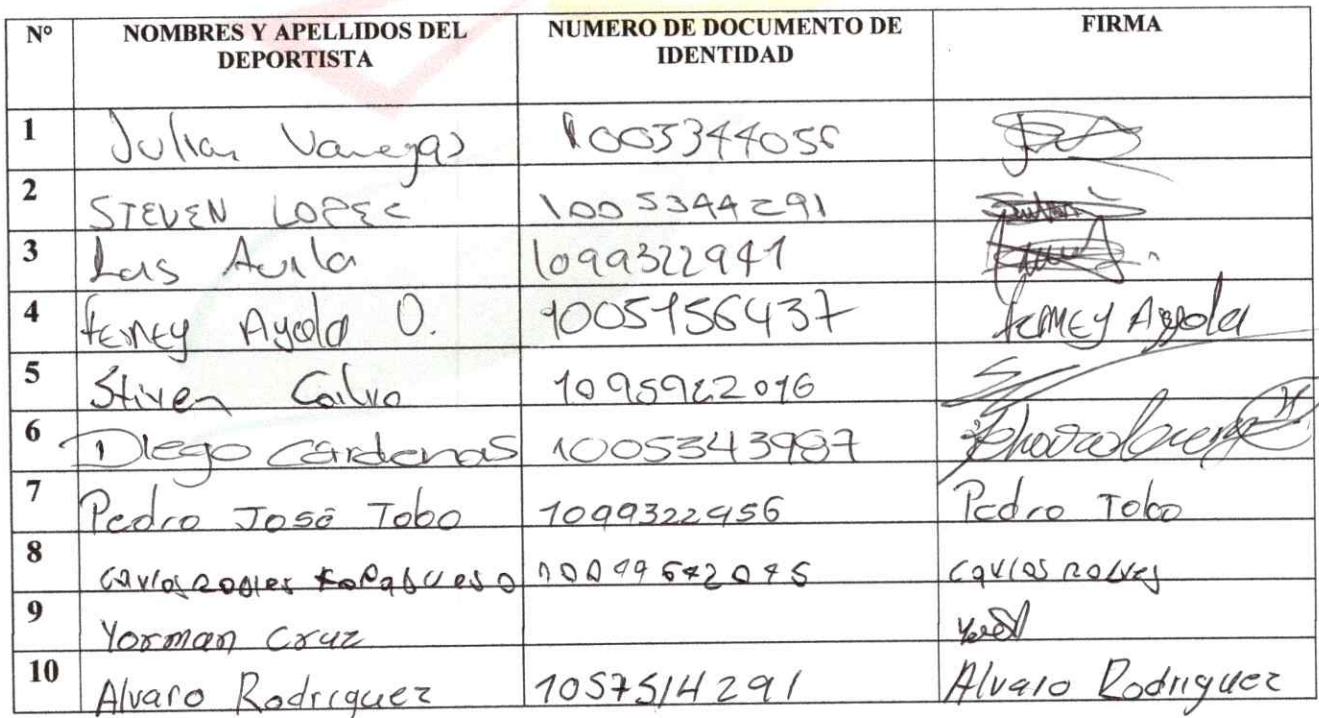 N° NOMBRES Y APELLIDOS DEL DEPORTISTA NUMERO DE DOCUMENTO DE IDENTIDAD FIRMA
1 Julian Vanegas 1005344056
2 STEVEN LOPEZ 1005344291
3 Luis Avila 1099322941
4 Ferney Ayala O. 1005156437 Ferney Ayala
5 Stiven Calvo 1095922016
6 Diego Cardenas 1005343987
7 Pedro José Tobo 1099322956 Pedro Tobo
8 Carlos Robles Carlos Robles
9 Yorman Cruz
10 Alvaro Rodriguez 1057514291 Alvaro Rodriguez